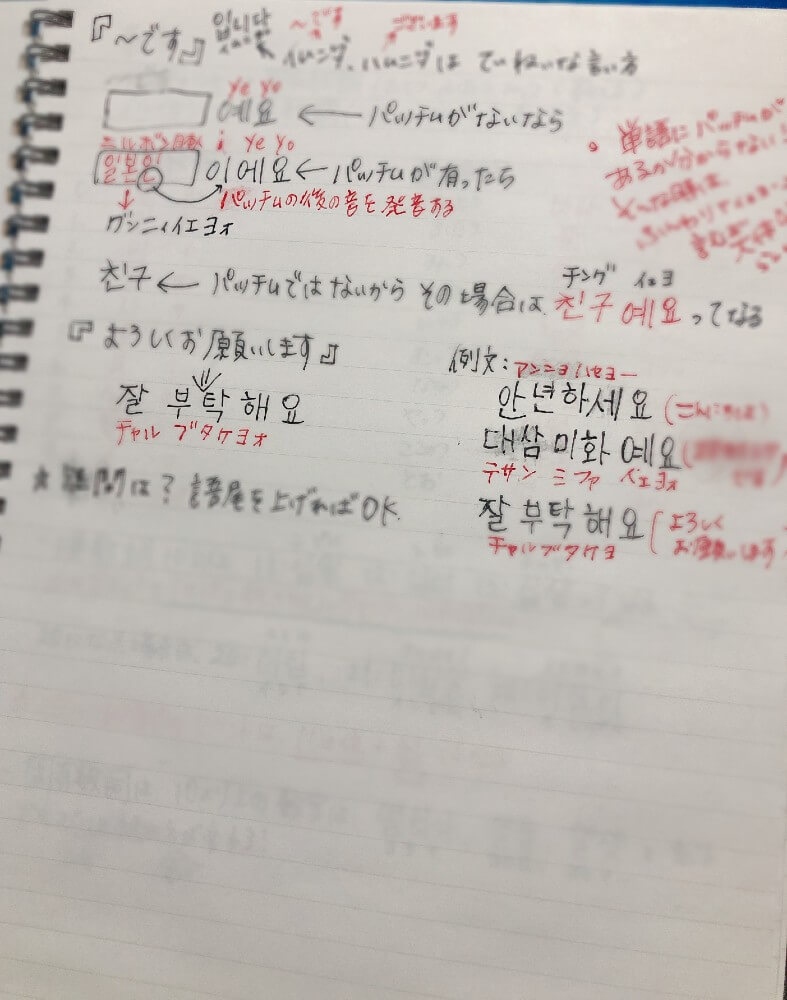 『〜です』 입니다 〜です ございます
イムニダ、ハムニダは ていねいな言い方
ye yo
예요 ← パッチムがないなら
i ye yo
일본인 이에요 ← パッチムが有ったら
パッチムの後の音を発音ある
グンニィイエヨォ
単語にパッチムが
あるか分からない
친구 ← パッチムではないから その場合は、친구 예요 ってなる
チング イェヨ
『よろしくお願いします』
잘 부탁해요
チャル ブタケヨォ
例文:アンニョハセヨー
안년하세요 (こんにちは)
대삼 미화 예요
テサン ミファ イェヨォ
잘 부탁해요 (よろしくお願いします
チャルブタケヨ
は? 語尾を上げればOK.